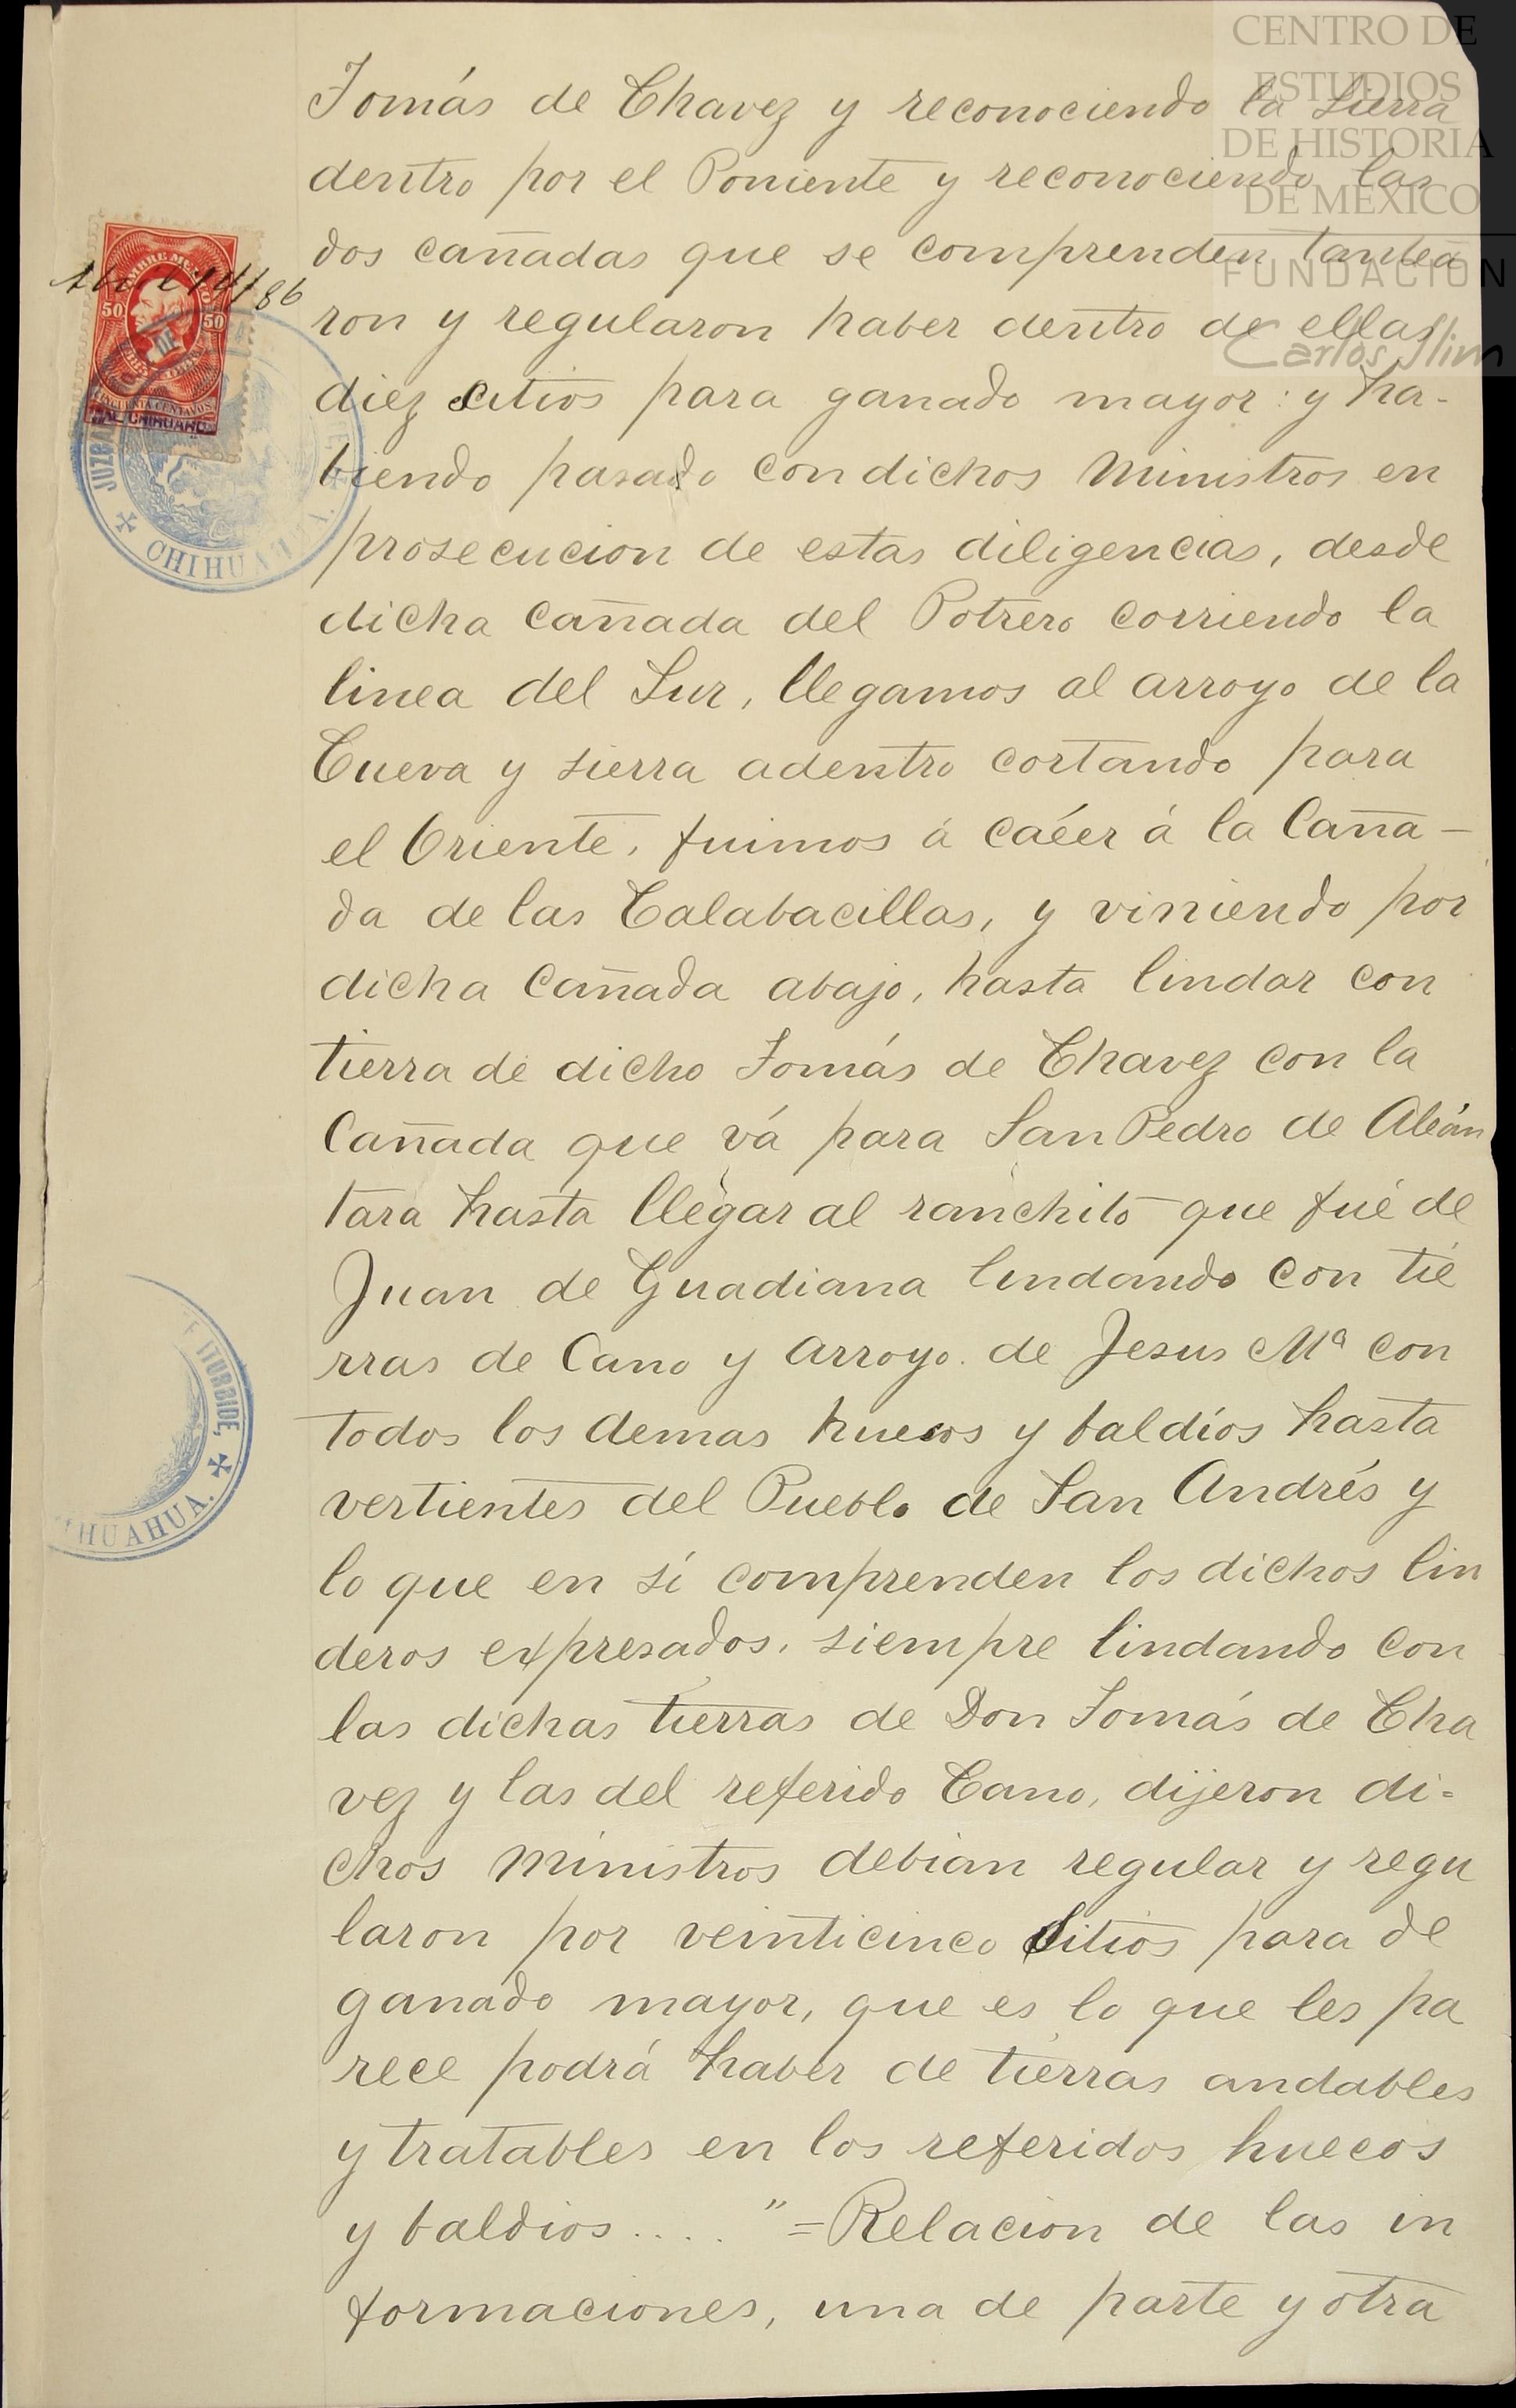 CENTRO DE
ESTUDIOS
DE HISTORIA
DE MÉXICO
FUNDACIÓN
Carlos Slim
Tomás de Chavez y reconociendo la sierra
dentro por el Poniente y reconociendo las
dos cañadas que se comprenden tantea
ron y regularon haber dentro de ellas
diez sitios para ganado mayor: y ha-
biendo pasado con dichos Ministros en
prosecucion de estas diligencias, desde
dicha Cañada del Potrero corriendo la
linea del Sur, llegamos al arroyo de la
Cueva y sierra adentro cortando para
el Oriente, fuimos á caéer á la Caña-
da de las Calabacillas, y viniendo por
dicha Cañada abajo, hasta lindar con
tierra de dicho Tomás de Chavez con la
Cañada que vá para San Pedro de Alcán
tara hasta llegar al ranchito que fué de
Juan de Guadiana lindando con tie
rras de Cano y arroyo de Jesus Mª con
todos los demas huecos y baldíos hasta
vertientes del Pueblo de San Andrés y
lo que en sí comprenden los dichos lin
deros expresados, siempre lindando con
las dichas tierras de Don Tomás de Cha
vez y las del referido Cano, dijeron di=
chos Ministros debian regular y regu
laron por veinticinco Sitios para de
ganado mayor, que es lo que les pa
rece podrá haber de tierras andables
y tratables en los referidos huecos
y baldios.... "=Relacion de las in
formaciones, una de parte y otra
50
50
CINCUENTA CENTAVOS
CHIHUAHUA
/86
CHIHUAHUA.
E ITURBIDE,
HIHUAHUA.